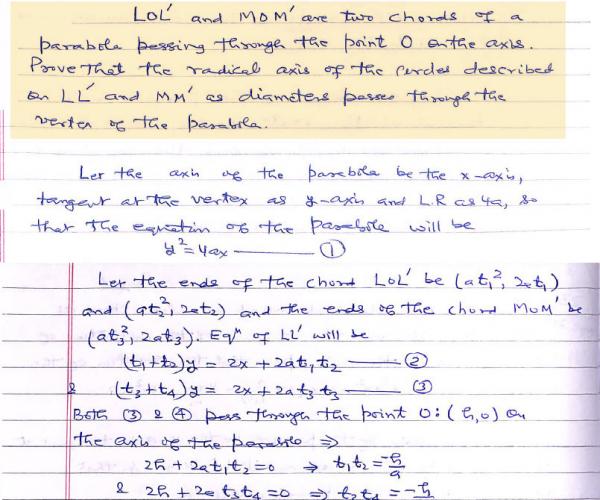 LOL' and MOM' are two chords of a
parabola passing through the point O on the axis.
Prove that the radical axis of the circles described
on LL' and MM' as diameters passes through the
vertex of the parabola.
Let the axis of the parabola be the x-axis,
tangent at the vertex as y-axis and L.R as 4a, so
that the equation of the parabola will be
y² = 4ax ——— ①
Let the ends of the chord LOL' be (at₁², 2at₁)
and (at₂², 2at₂) and the ends of the chord MOM' be
(at₃², 2at₃). Eqⁿ of LL' will be
(t₁+t₂)y = 2x + 2at₁t₂ ——— ②
& (t₃+t₄)y = 2x + 2at₃t₃ ——— ③
Both ③ & ④ pass through the point O:(h,0) on
the axis of the parabola ⇒
2h + 2at₁t₂ = 0 ⇒ t₁t₂ = -h/a
& 2h + 2at₃t₄ = 0 ⇒ t₃t₄ = -h